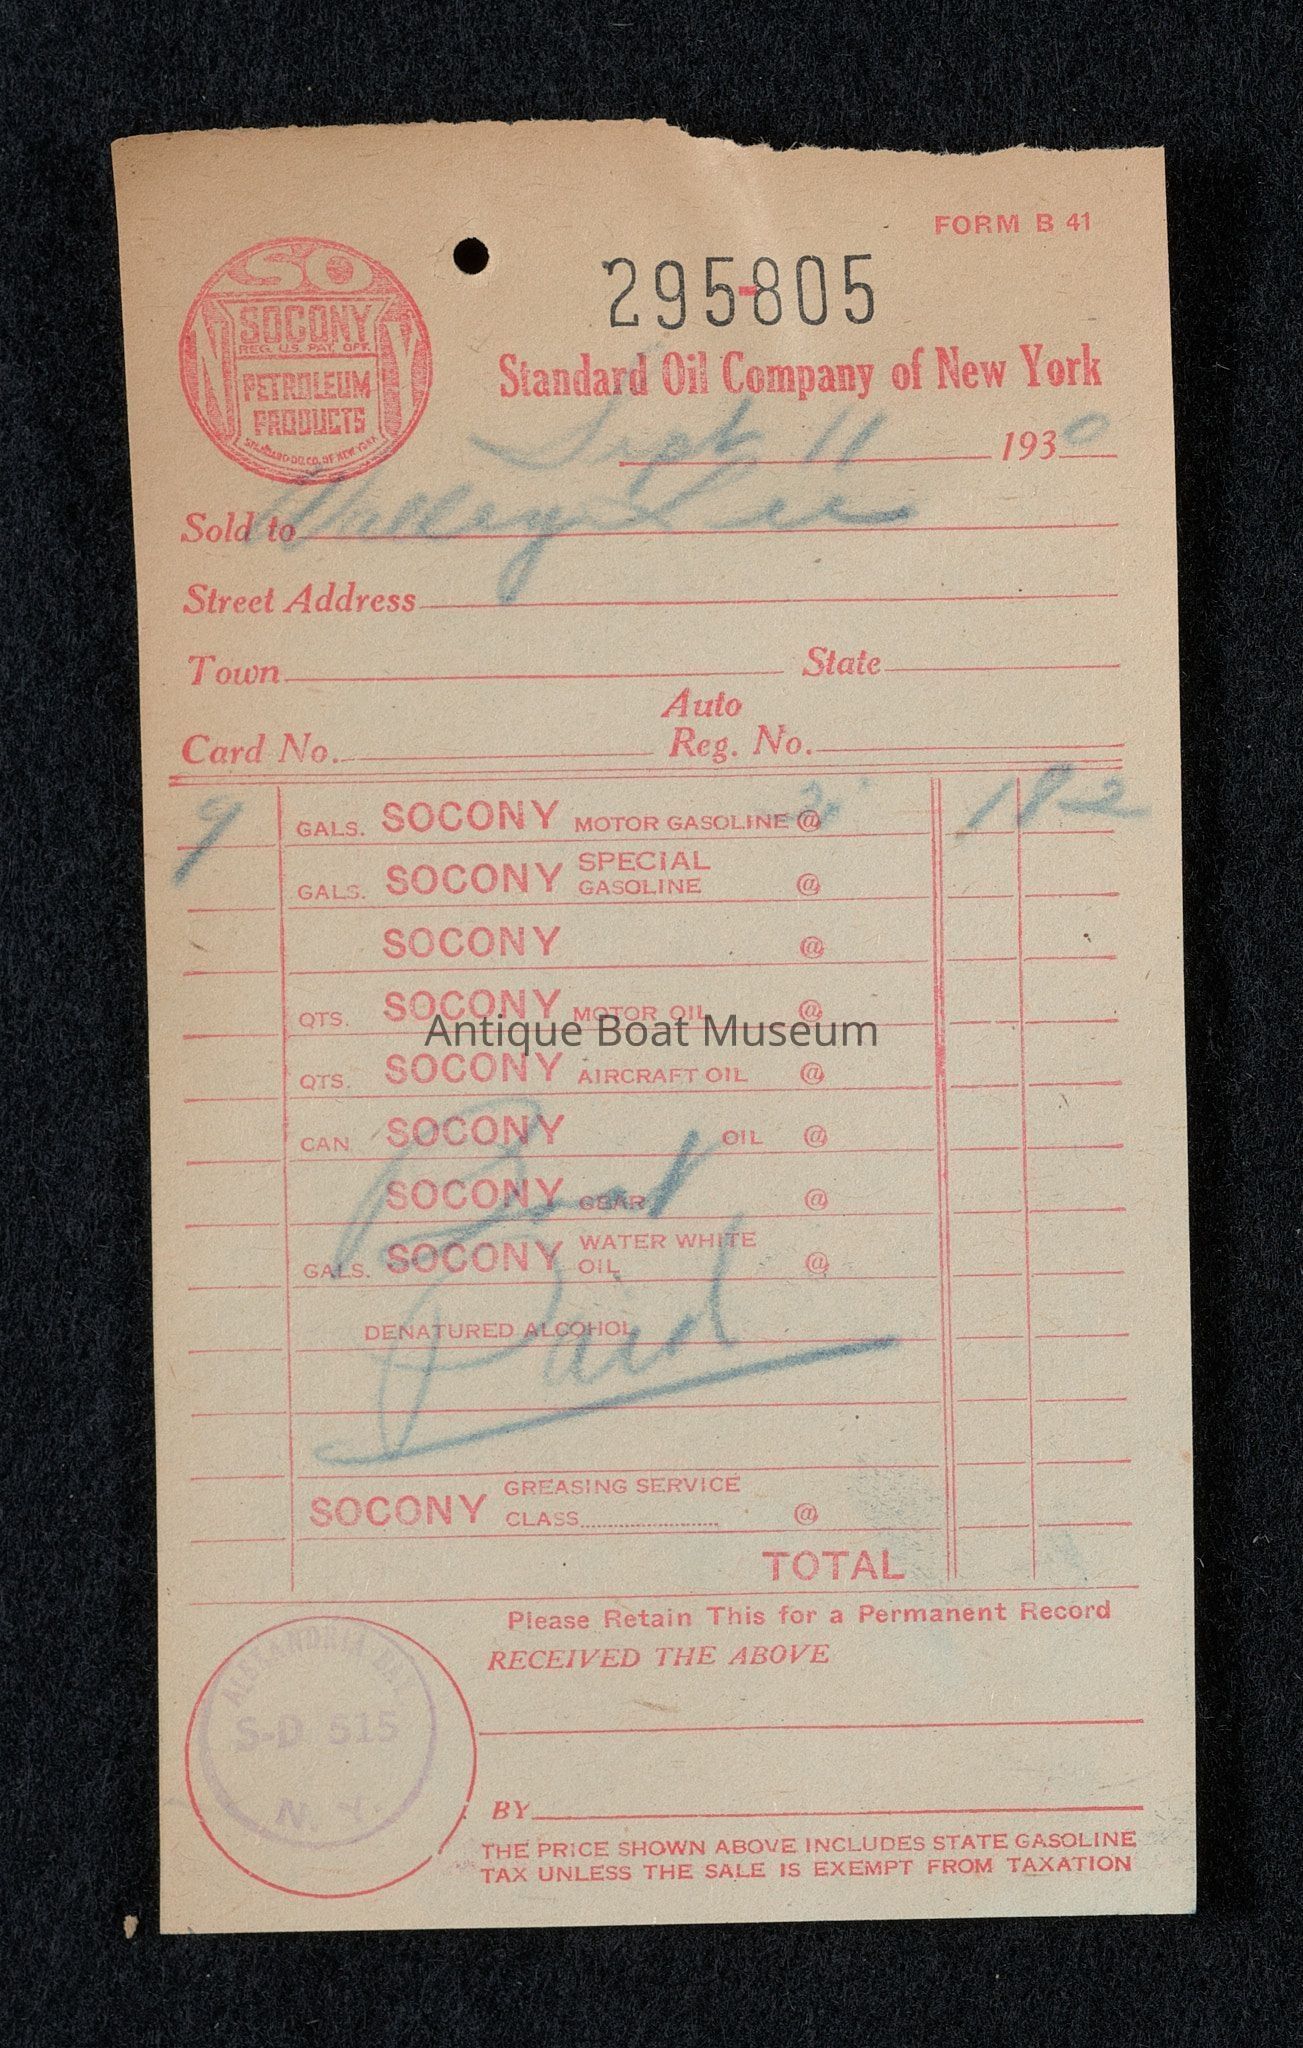 FORM B 41
295-805
SO
SOCONY
REG. U.S. PAT. OFF.
PETROLEUM
PRODUCTS
N Y
STANDARD OIL CO. OF NEW YORK
Standard Oil Company of New York
Sept 11 1930
Sold to
Street Address
Town State
Auto
Card No. Reg. No.
9 GALS. SOCONY MOTOR GASOLINE @ 1 82
GALS. SOCONY SPECIAL GASOLINE @
SOCONY @
QTS. SOCONY MOTOR OIL @
Antique Boat Museum
QTS. SOCONY AIRCRAFT OIL @
CAN SOCONY OIL @
SOCONY GEAR @
GALS. SOCONY WATER WHITE OIL @
DENATURED ALCOHOL
Paid
SOCONY GREASING SERVICE
CLASS @
TOTAL
Please Retain This for a Permanent Record
RECEIVED THE ABOVE
ALEXANDRIA BAY
S-D 515
N. Y.
BY
THE PRICE SHOWN ABOVE INCLUDES STATE GASOLINE
TAX UNLESS THE SALE IS EXEMPT FROM TAXATION